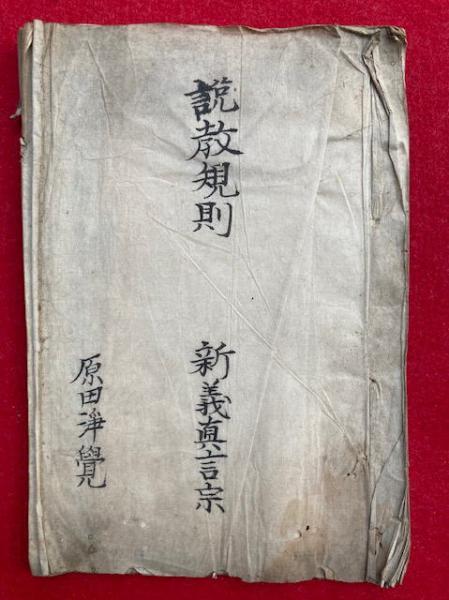 說教規則
新義真言宗
原田淨覺